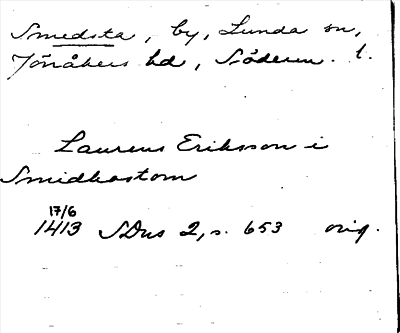 Smedsta, by, Lunda sn,
Jönåkers hd, Söderm. l.
Laurens Eriksson i
Smidhastom
17/6
1413 SDns 2, s. 653 orig.